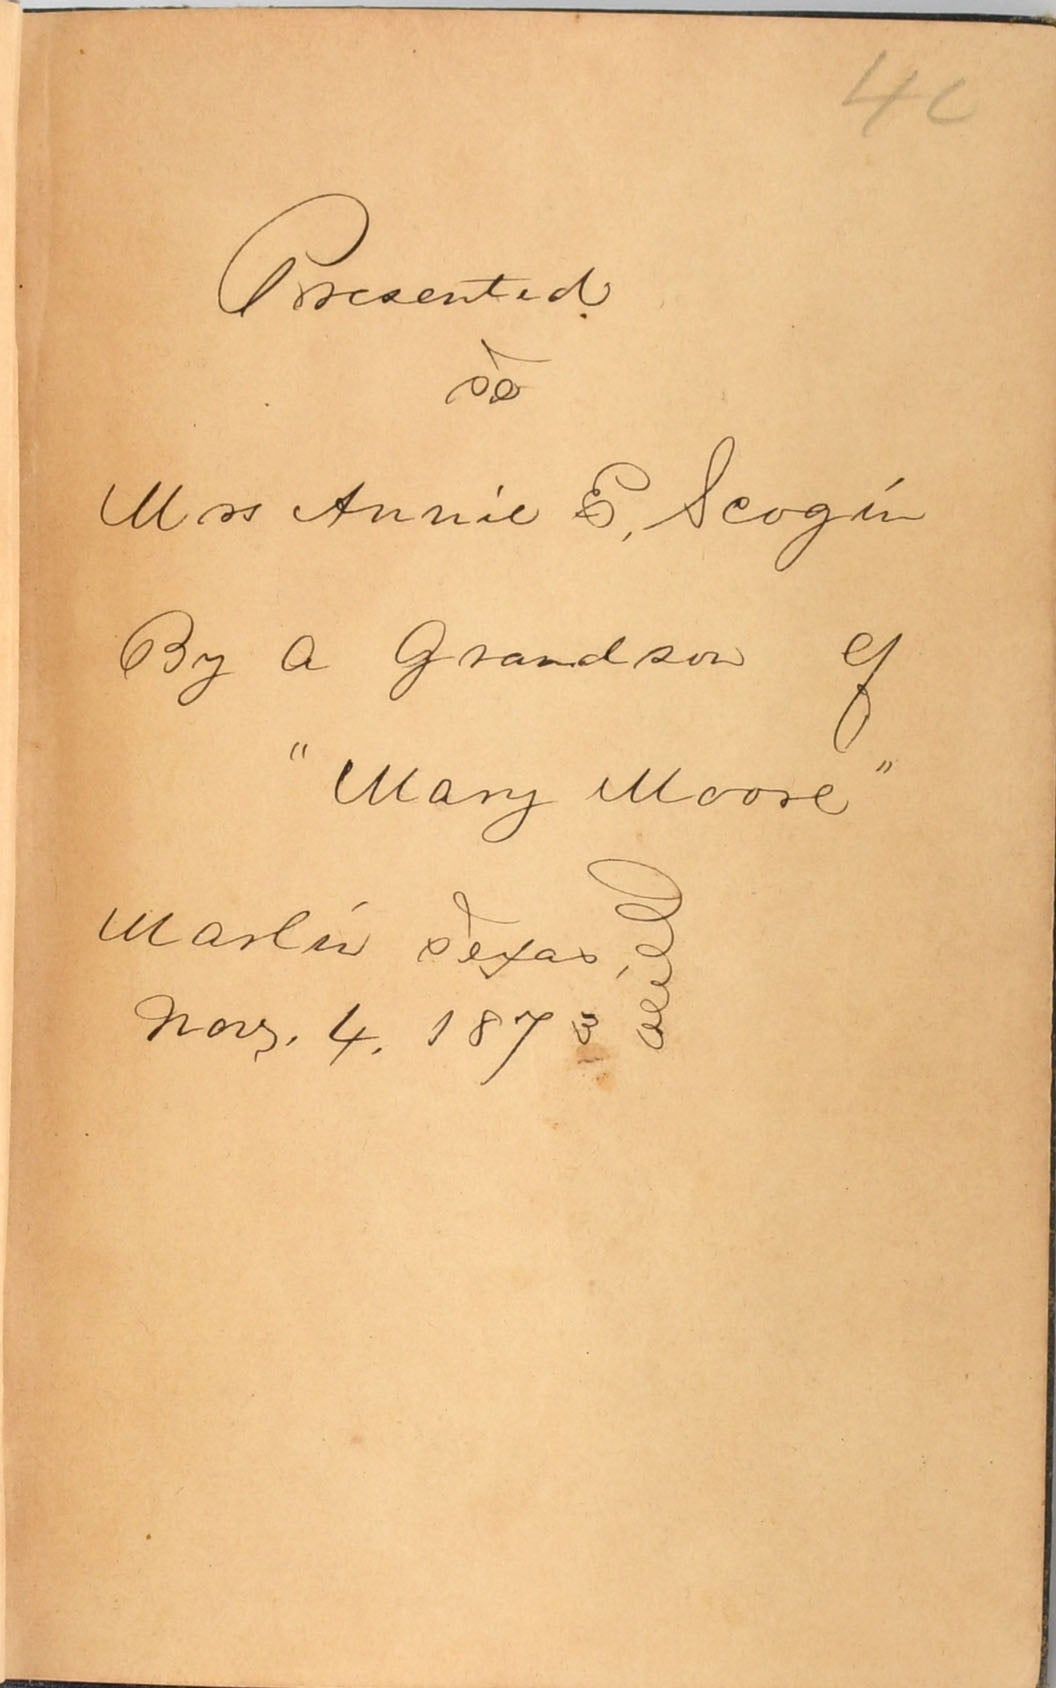 4c
Presented
to
Mrs Annie E, Scogin
By a Grandson of
"Mary Moore"
Marlin Texas,
Nov, 4, 1873